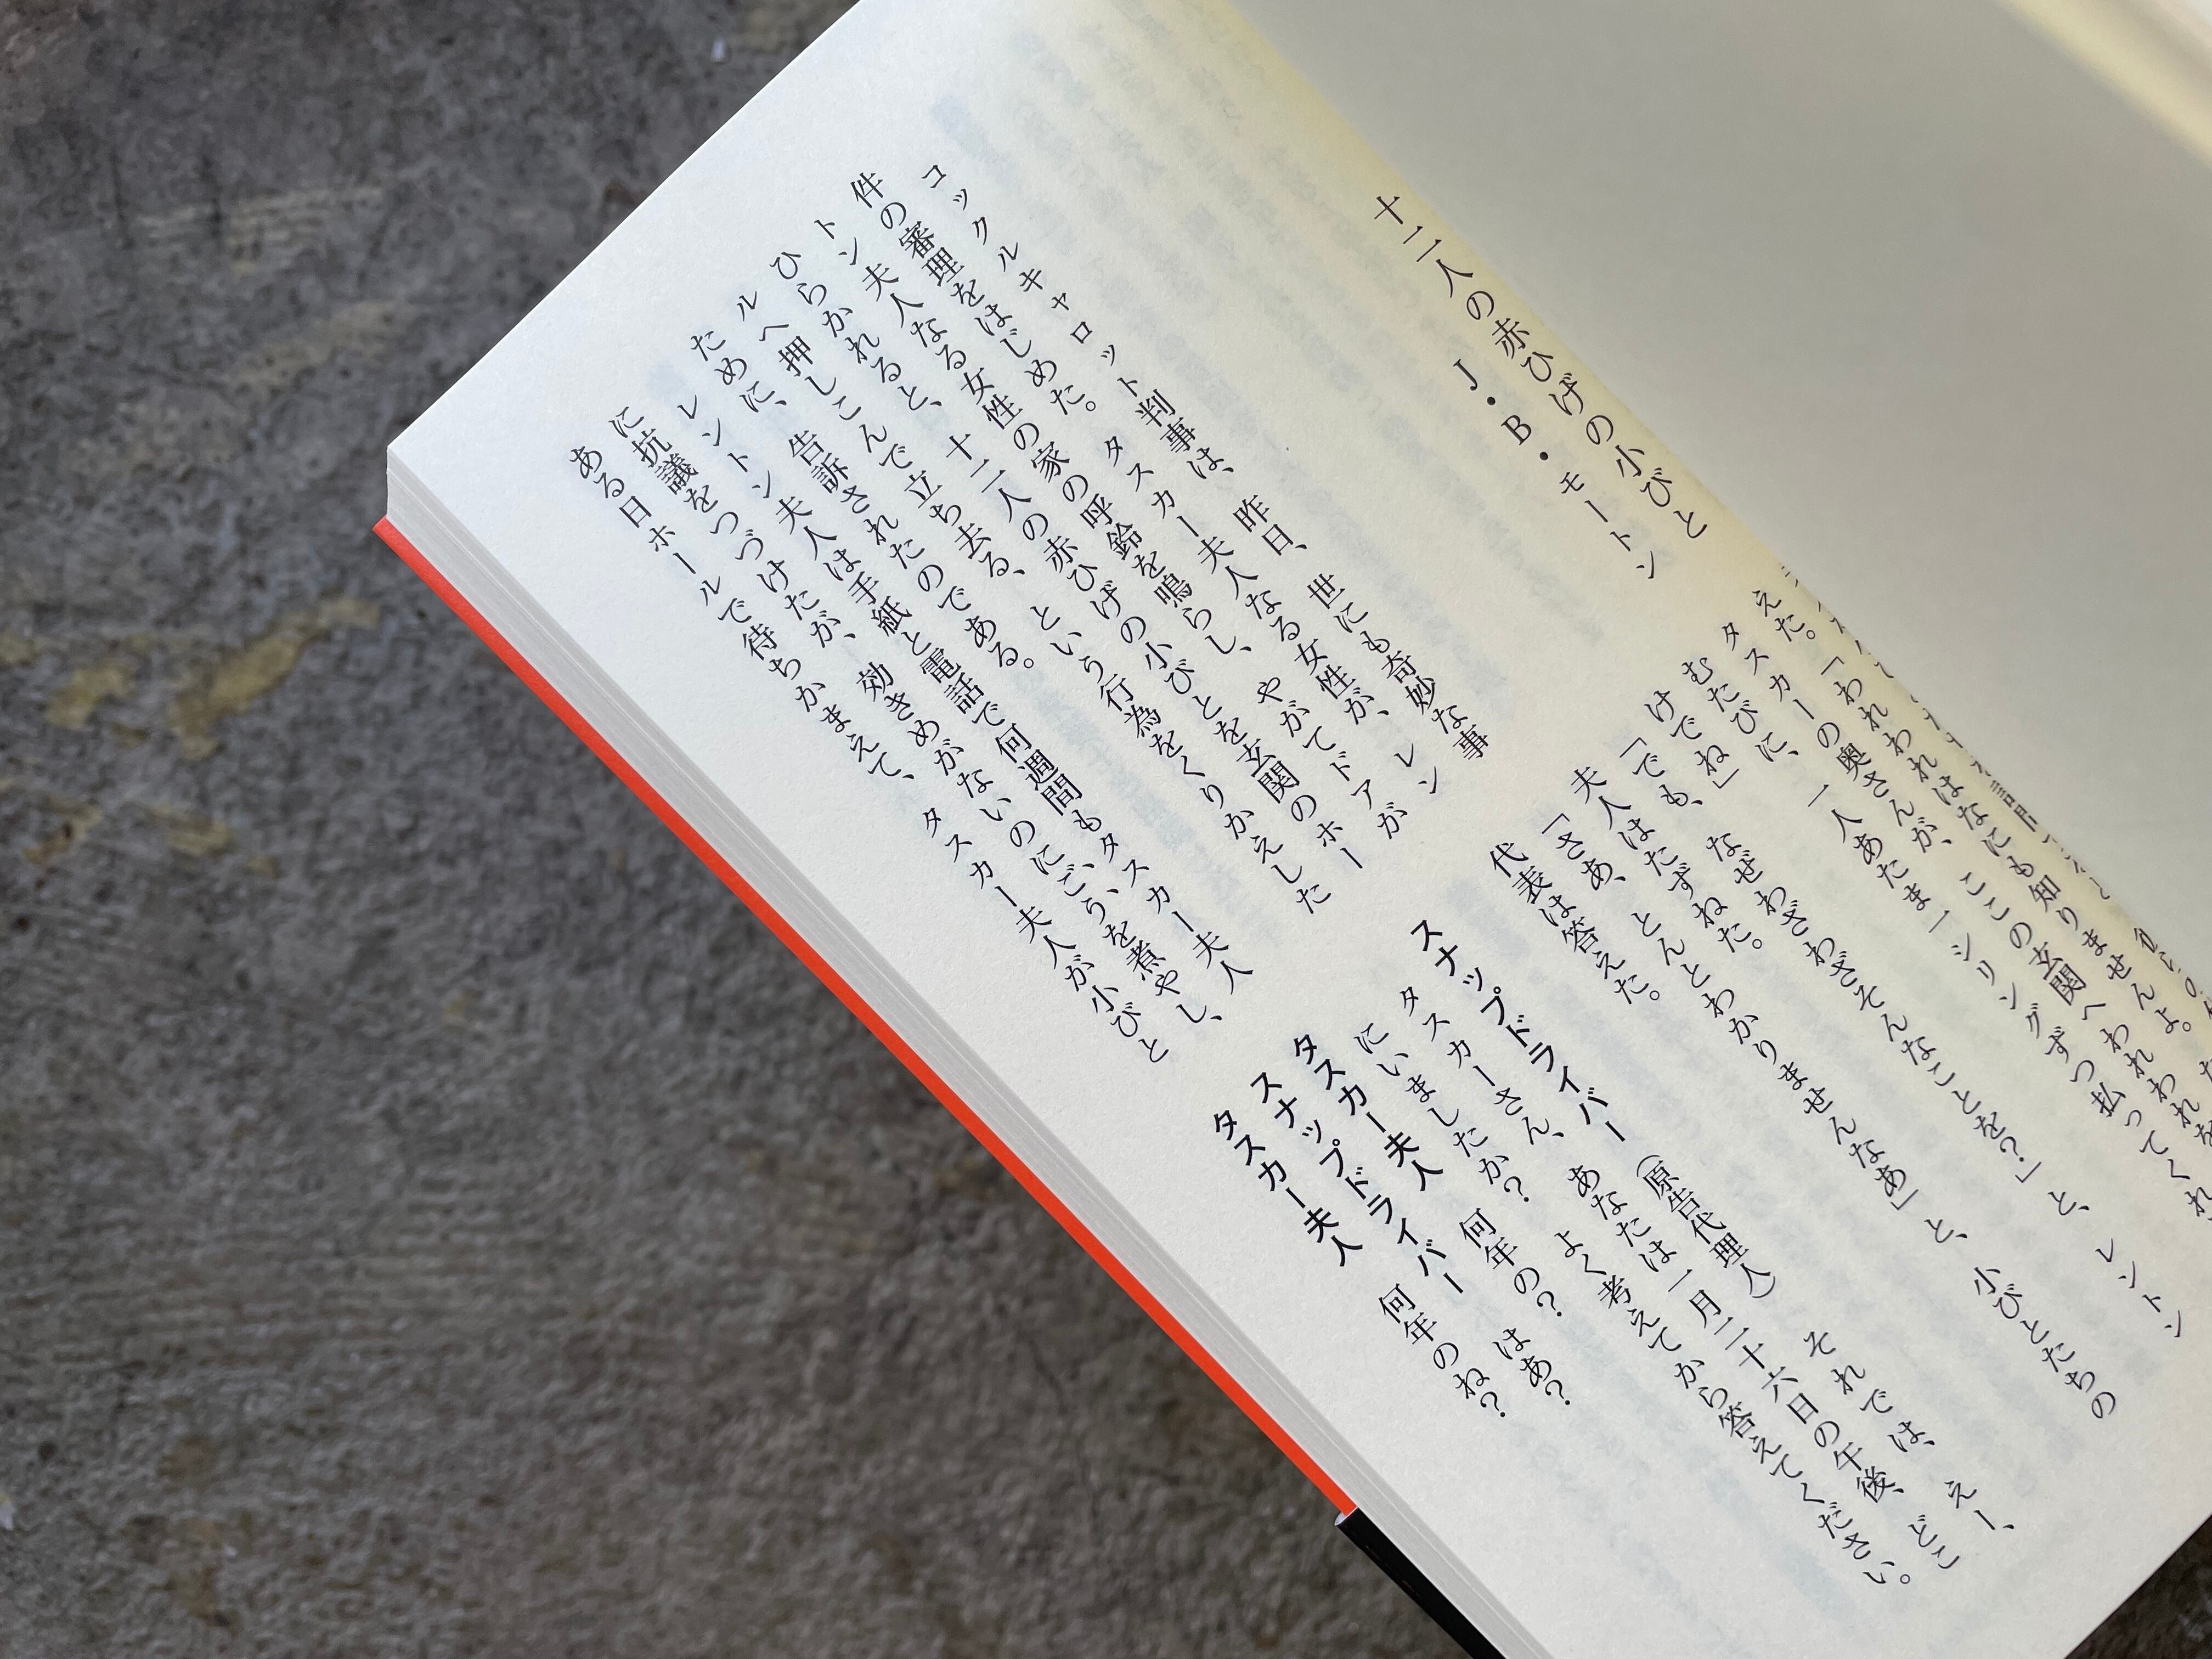 十二人の赤ひげの小びと
J・B・モートン
コックルキャロット判事は、昨日、世にも奇妙な事
件の審理をはじめた。タスカー夫人なる女性が、レン
トン夫人なる女性の家の呼鈴を鳴らし、やがてドアが
ひらかれると、十二人の赤ひげの小びとを玄関のホー
ルへ押しこんで立ち去る、という行為をくりかえした
ために、告訴されたのである。
レントン夫人は手紙と電話で何週間もタスカー夫人
に抗議をつづけたが、効きめがないのにごうを煮やし、
ある日ホールで待ちかまえて、タスカー夫人が小びと
えた。「われわれはなにも知りませんよ。
タスカーの奥さんが、ここの玄関へわれわれを
むたびに、一人あたま一シリングずつ払ってくれ
けでね」
「でも、なぜわざわざそんなことを?」と、レントン
夫人はたずねた。
「さあ、とんとわかりませんなあ」と、小びとたちの
代表は答えた。
スナップドライバー(原告代理人) それでは、えー、
タスカーさん、あなたは一月二十六日の午後、どこ
にいましたか? よく考えてから答えてください。
タスカー夫人 何年の? はあ?
スナップドライバー 何年のね?
タスカー夫人